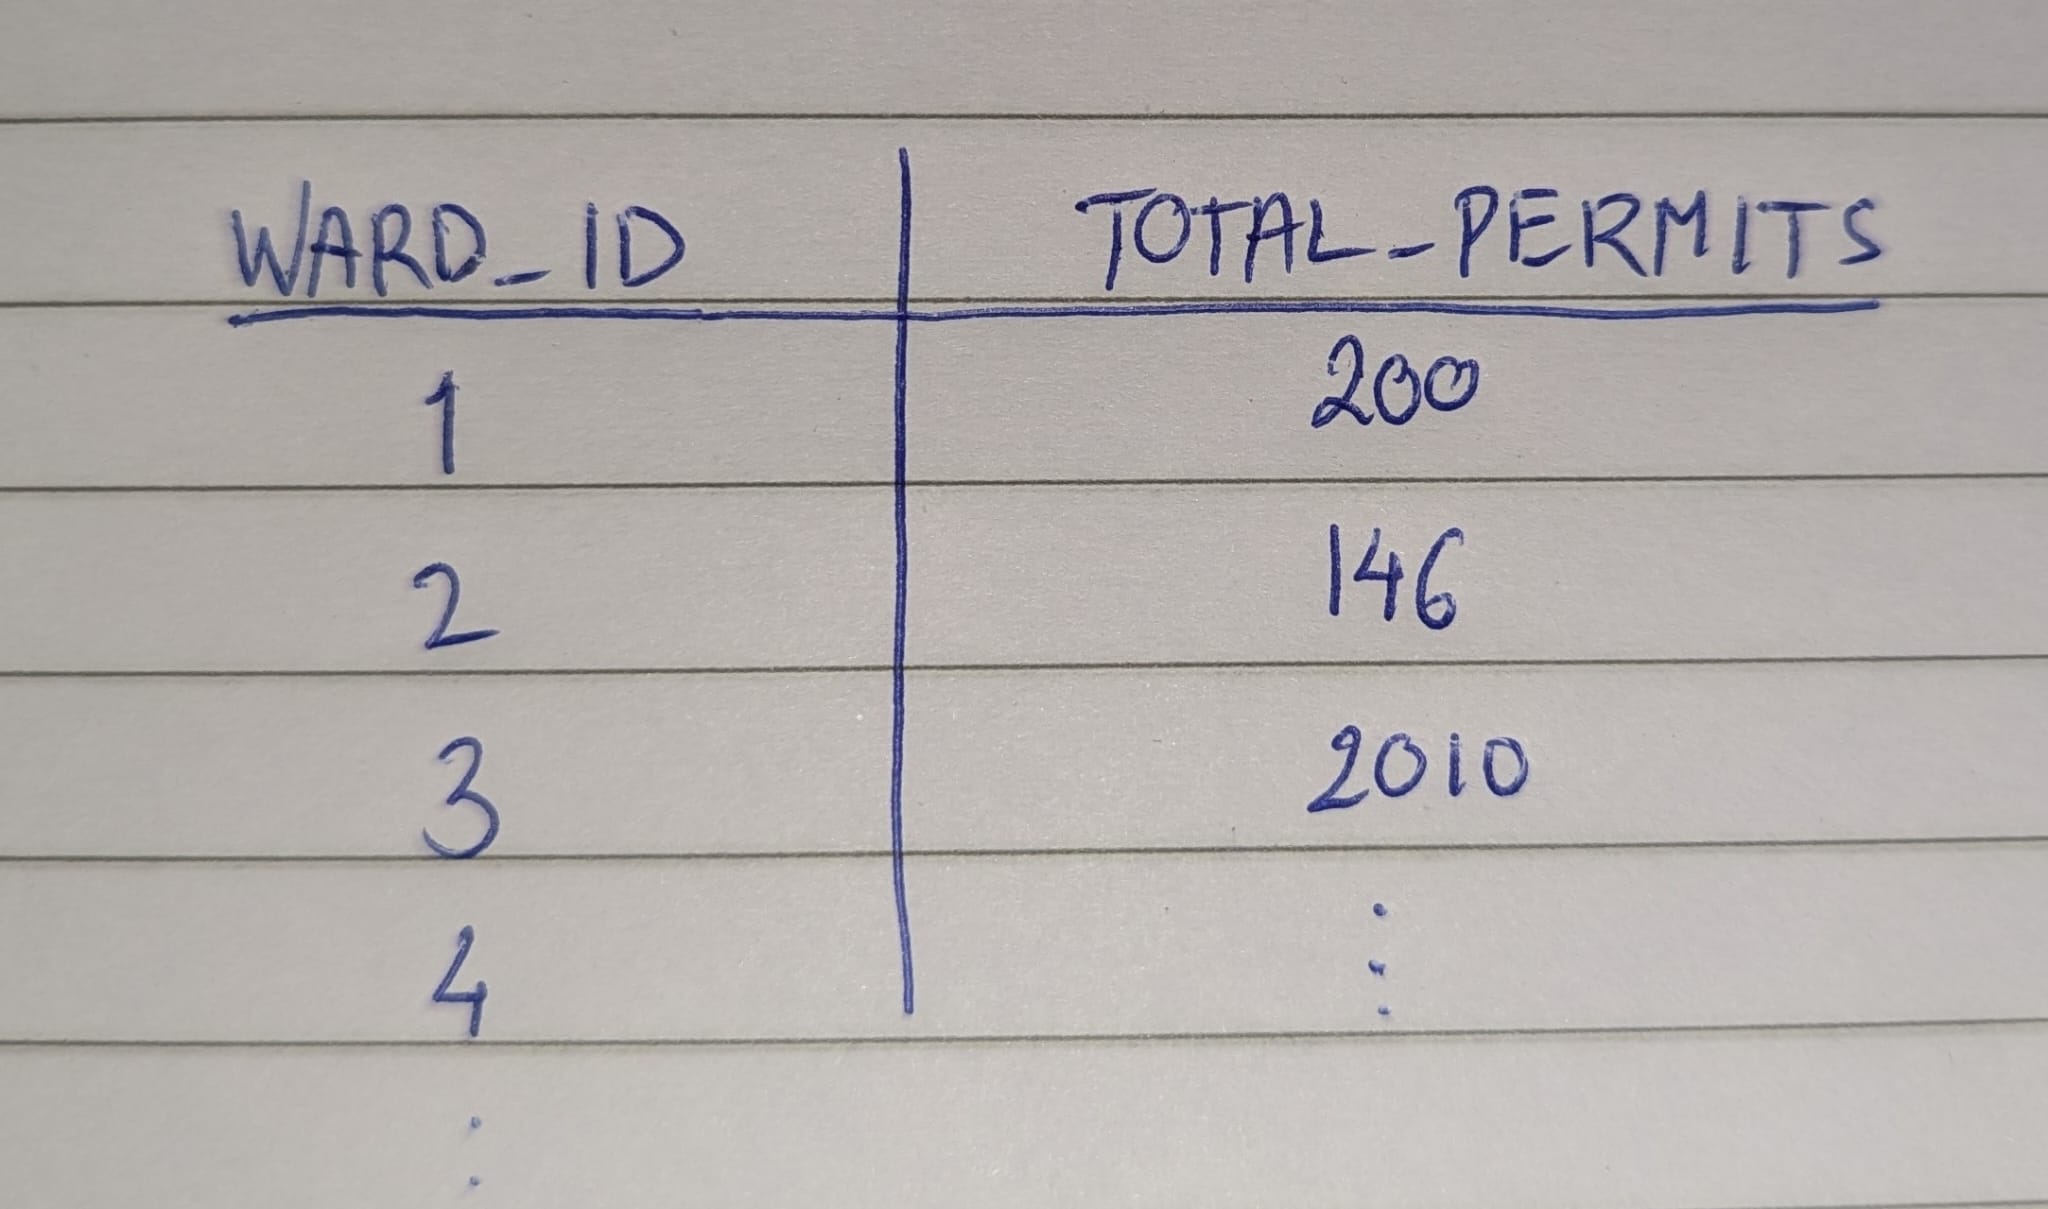 WARD_ID TOTAL_PERMITS
1 200
2 146
3 2010
4 ⋮
⋮